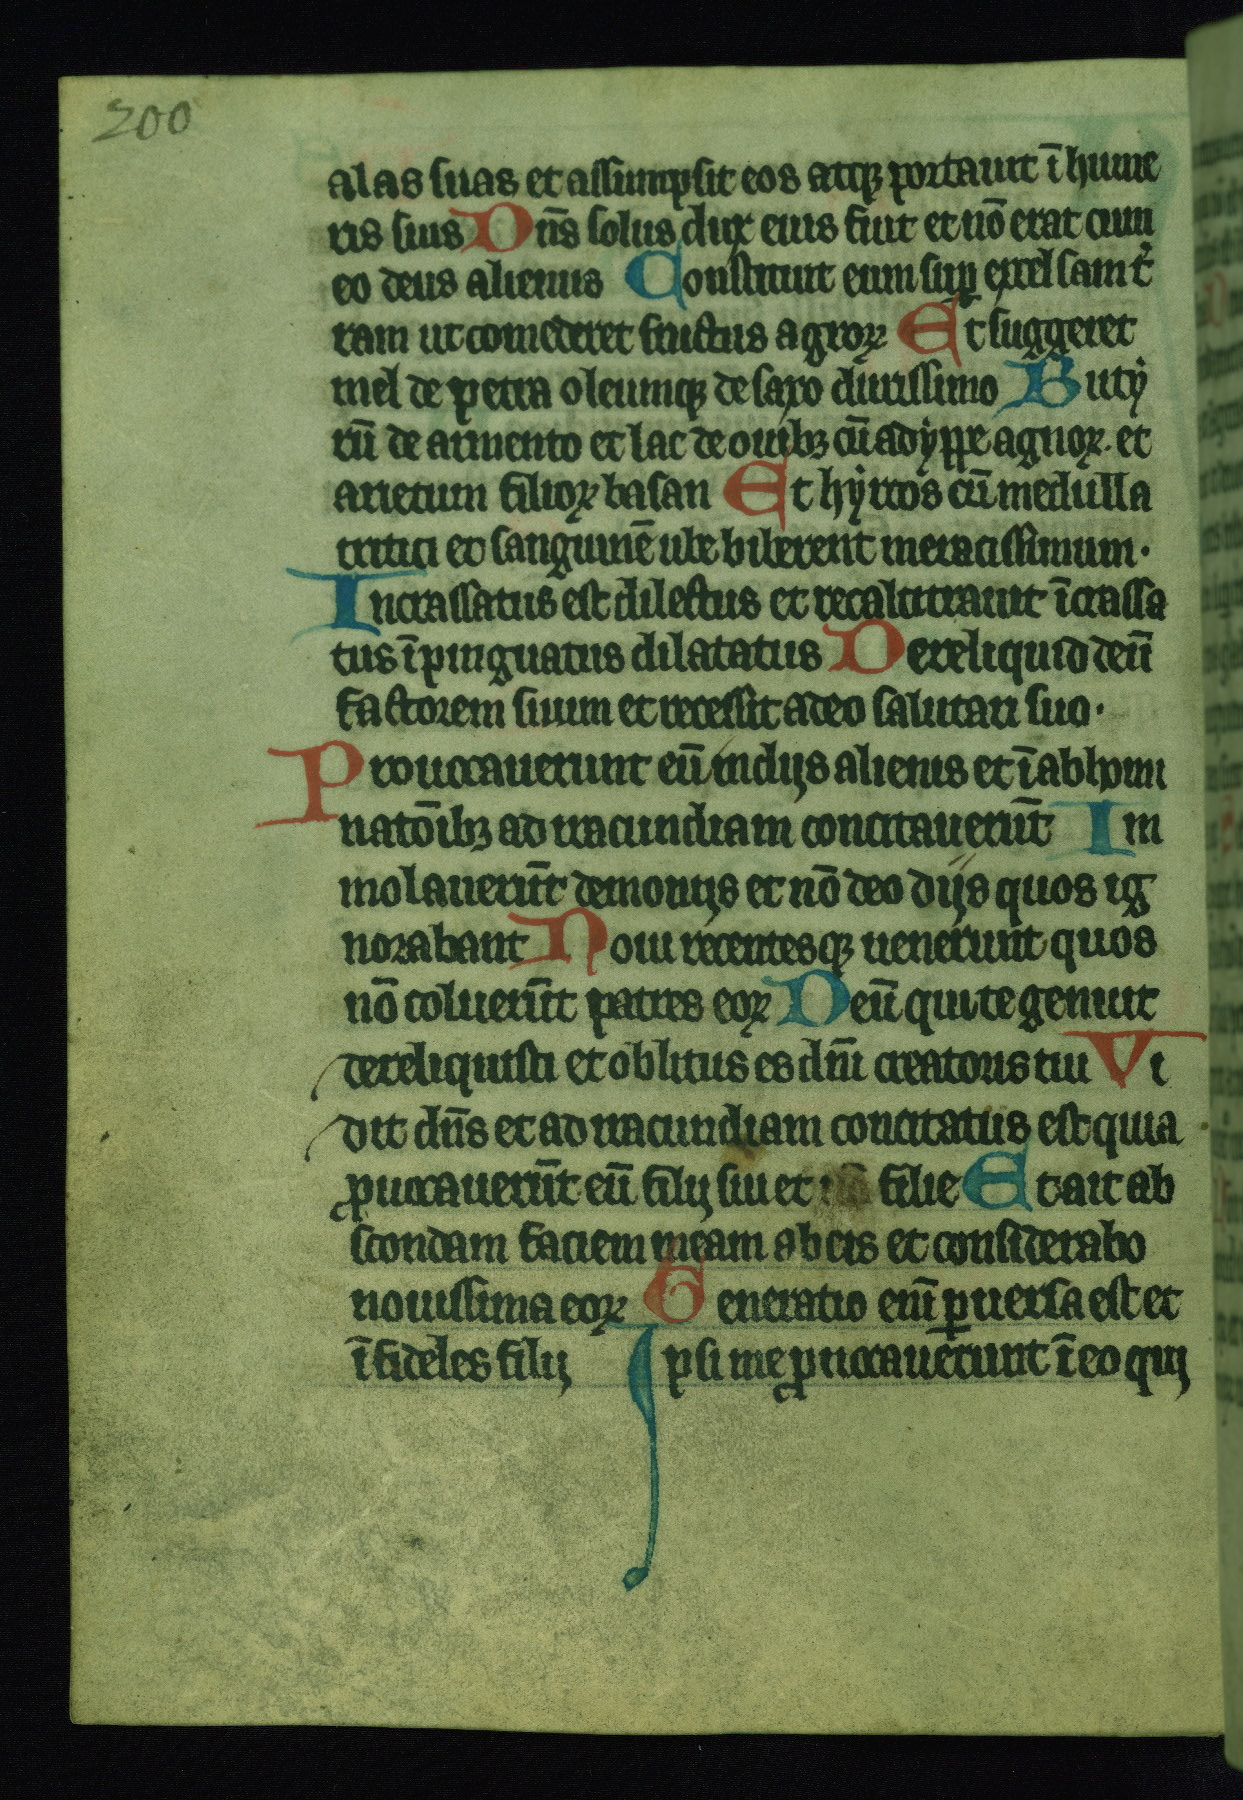 200
alas suas et assumpsit eos atq; portauit ī hume
ris suis Dn̄s solus dux eius fuit et nō erat cum
eo deus alienus Constituit eum suꝑ excelsam t̄
ram ut comederet fructus agroꝝ Et suggeret
mel de petra oleumq; de saxo durissimo Buty
rū de armento et lac de ouibꝫ cū adyppe agnoꝝ et
arietum filioꝝ basan Et hyrcos cū medulla
tritici et sanguinē uue biberent meracissimum.
Incrassatus est dilectus et recalcitrauit īcrassa
tus īpinguatus dilatatus Dereliquid deū
factorem suum et recessit a deo salutari suo.
Prouocauerunt eū in dijs alienis et ī abhomi
natōibꝫ ad iracundiam concitauerūt Im
molauerūt demonijs et nō deo dijs quos ig
norabant Noui recentesq; uenerunt quos
nō coluerūt patres eoꝝ Deū qui te genuit
dereliquisti et oblitus es dn̄i creatoris tui Vi
dit dn̄s et ad iracundiam concitatus est quia
ꝓuocauerūt eū filij sui et filie Et ait ab
scondam faciem meam ab eis et considerabo
nouissima eoꝝ Generatio eni̅ ꝑuersa est et
īfideles filij Ipsi me ꝓuocauerunt ī eo qui